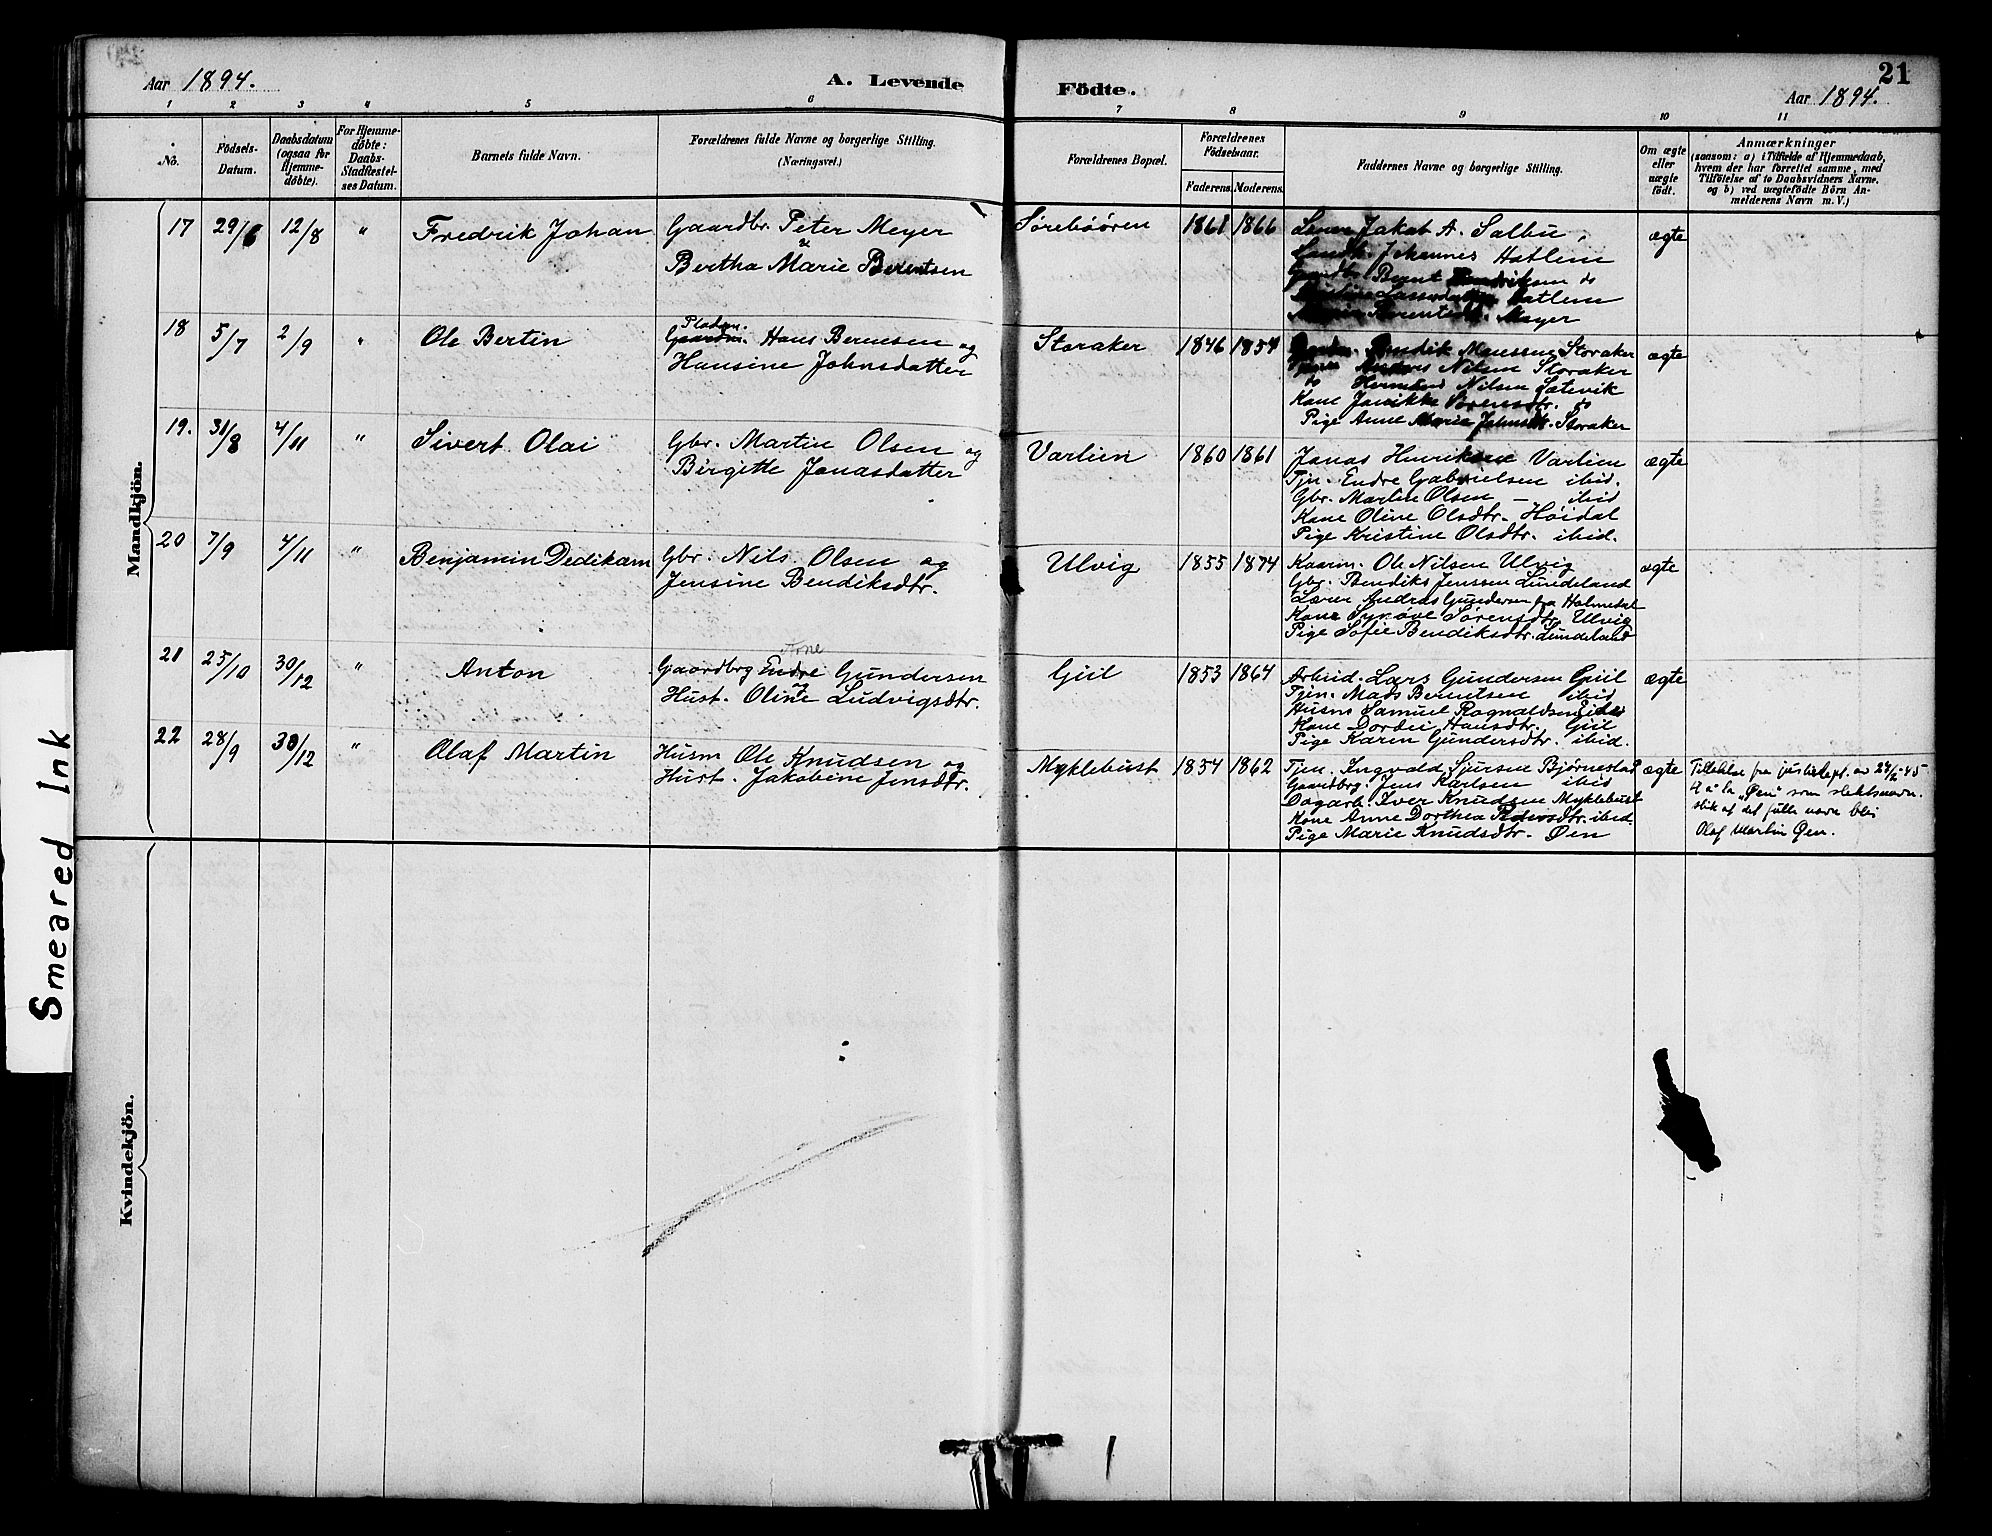 Aar 1894.
A. Levende Födte.
21
Aar 1894.
1 2 3 4 5 6 7 8 9 10 11
No.
Födsels-
Datum.
Daabsdatum
(ogsaa for
Hjemme-
döbte).
For Hjemme-
döbte:
Daabs-
Stadfæstel-
ses Datum.
Barnets fulde Navn.
Forældrenes fulde Navne og borgerlige Stilling.
(Næringsvei.)
Forældrenes Bopæl.
Forældrenes
Födselsaar.
Faderens. Moderens.
Faddernes Navne og borgerlige Stilling.
Om ægte
eller
uægte
født.
Anmærkninger
(saasom: a) i Tilfælde af Hjemmedaab,
hvem der har forrettet samme, med
Tilföielse af to Daabsvidners Navne.
og b) ved uægtefödte Börn An-
melderens Navn m. V.)
Mandkjön.
17 29/6 12/8 " Fredrik Johan
Gaardbr. Peter Meyer
&
Bertha Marie Berentsen
Sørebøøren 1861 1866
Jakob A. Salbu,
Johannes Hatlem
Gaardbr. Bernt
Hatlem
Meyer
ægte
18 5/7 2/9 " Ole Bertin
Pladsm.
Gaardm. Hans Berensen og
Hansine Johnsdatter
Storaker 1846 1854
Bendik Monssen Storaker
Anders Nilsen Storaker
do Hermund Nilsen Sætevik
Kone Jannikke Sørensdtr. do
Pige Anne Marie Johnsdtr. Storaker
ægte
19. 31/8 4/11 " Sivert Olai
Gbr. Martin Olsen og
Birgitte Jonasdatter
Varlien 1860 1861
Jonas Henriksen Varlien
Tjn. Endre Gabrielsen ibid.
Gbr. Martin Olsen – ibid
Kone Oline Olsdtr. Høidal
Pige Kristine Olsdtr. ibid.
ægte
20 7/9 4/11 " Benjamin Dedikam
Gbr. Nils Olsen og
Jensine Bendiksdtr.
Ulvig 1855 1874
Kaarm. Ole Nilsen Ulvig
Gbr. Bendiks Jenssen Lundeland
Lærer Andras Gundersen fra Holmedal
Kone Synøve Sørensdtr. Ulvig
Pige Sofie Bendiksdtr. Lundeland
ægte
21 25/10 30/12 " Anton
Arne
Gaardbrg Endre Gundersen
og
Hust. Oline Ludvigsdtr.
Giil 1853 1864
Arbeid. Lars Gundersen Giil
Tjen. Mads Berentsen ibid
Husm Samuel Ragnaldsen Eide
Kone Dorthe Hansdtr. Giil
Pige Karen Gundersdtr. ibid.
ægte
22 28/9 30/12 " Olaf Martin
Husm Ole Knudsen og
Hust. Jakobine Jensdtr.
Myklebust 1854 1862
Tjen. Ingvald Sjursen Bjørnestad
Gaardbrg. Jens Karlsen ibid
Dagarb. Iver Knudsen Myklebust
Kone Anne Dorthea Pedersdtr. ibid.
Pige Marie Knudsdtr. Øen
ægte
Tillatelse fra justisdept. av 24/2-45
til å ta "Øen" som slektsnavn.
slik at det fulle navn blir
Olaf Martin Øen.
Kvindekjön.
Smeared Ink